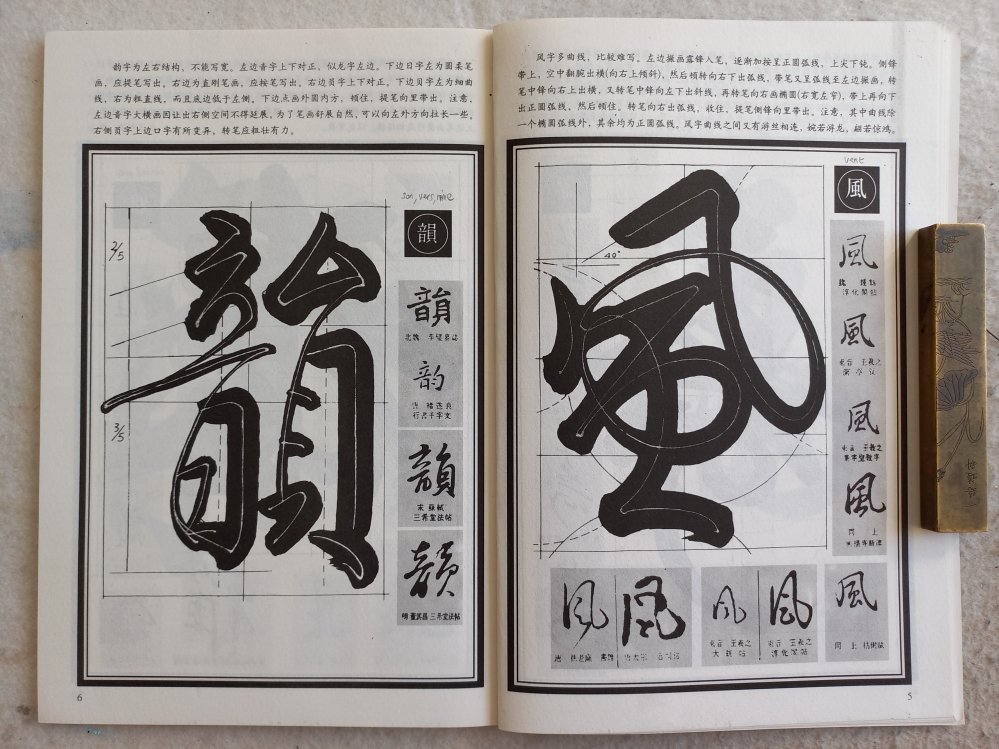 韵字为左右结构，不能写宽。左边音字上下对正，似龙字左边。下边日字左为圆柔笔
画，应提笔写出。右边为直刚笔画，应按笔写出。右边员字上下对正，下边贝字左为细曲
线，右为粗直线，而且底边低于左侧，下边点画外圆内方，顿住，提笔向里带出。注意，
左边音字大横画因让出右侧空间不得延展，为了笔画舒展自然，可以向左外方向拉长一些。
右侧员字上边口字有所变异，转笔应粗壮有力。
son, vers, rime
韻
2/5
3/5
韻
韻
北魏
韵
行书千字文
韻
宋 蘇軾
三希堂法帖
韻
明 董其昌 三希堂法帖
6
风字多曲线，比较难写。左边撇画露锋入笔，逐渐加按呈正圆弧线，上尖下钝。侧锋
带上，空中翻腕出横(向右上倾斜)，然后顿转向右下出弧线，带笔又呈弧线至左边撇画，转
笔中锋向右上出横，又转笔中锋向左下出斜线，再转笔向右画椭圆(右宽左窄)，带上再向下
出正圆弧线，然后顿住，转笔向右出弧线，收住，提笔侧锋向里带出。注意，其中曲线除
一个椭圆弧线外，其余均为正圆弧线。风字曲线之间又有游丝相连，婉若游龙，翩若惊鸿。
vent
風
40°
風
風
淳化閣帖
風
東晉 王羲之
風
東晉 王羲之
風
同 上
風
風
風
東晉 王羲之
風
東晉 王羲之
淳化閣帖
風
同 上
5